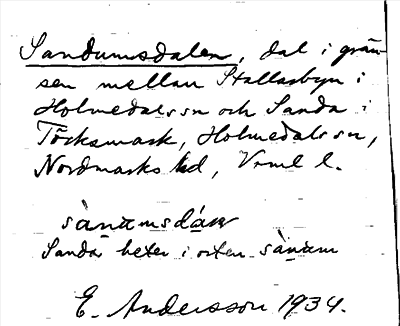 Sandumsdalen, dal i grän-
sen mellan Stallarbyn i
Holmedals sn och Sanda i
Töcksmark, Holmedals sn,
Nordmarks hd, Vrml l.
sànamsdáɷ
Sanda heter i orten sànam
E. Andersson 1934.